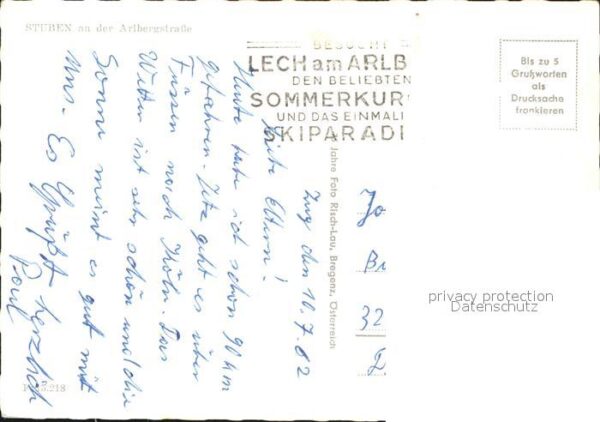 STUBEN an der Arlbergstraße
BESUCHT
LECH am ARLB
DEN BELIEBTEN
SOMMERKUR
UND DAS EINMALI
SKIPARADI
Bis zu 5
Grußworten
als
Drucksache
frankieren
Jahre Foto Risch-Lau, Bregenz, Österreich
Zürs den 10.7.62
Liebe Eltern!
Heute habe ich schon 90 km
gefahren. Jetz geht es über
Füssen nach Tirol. Das
Wetter ist sehr schön und die
Sonne meint es gut mit
Uns. Es Grüßt herzlich
Jo
Br
32
privacy protection
Datenschutz
5.218